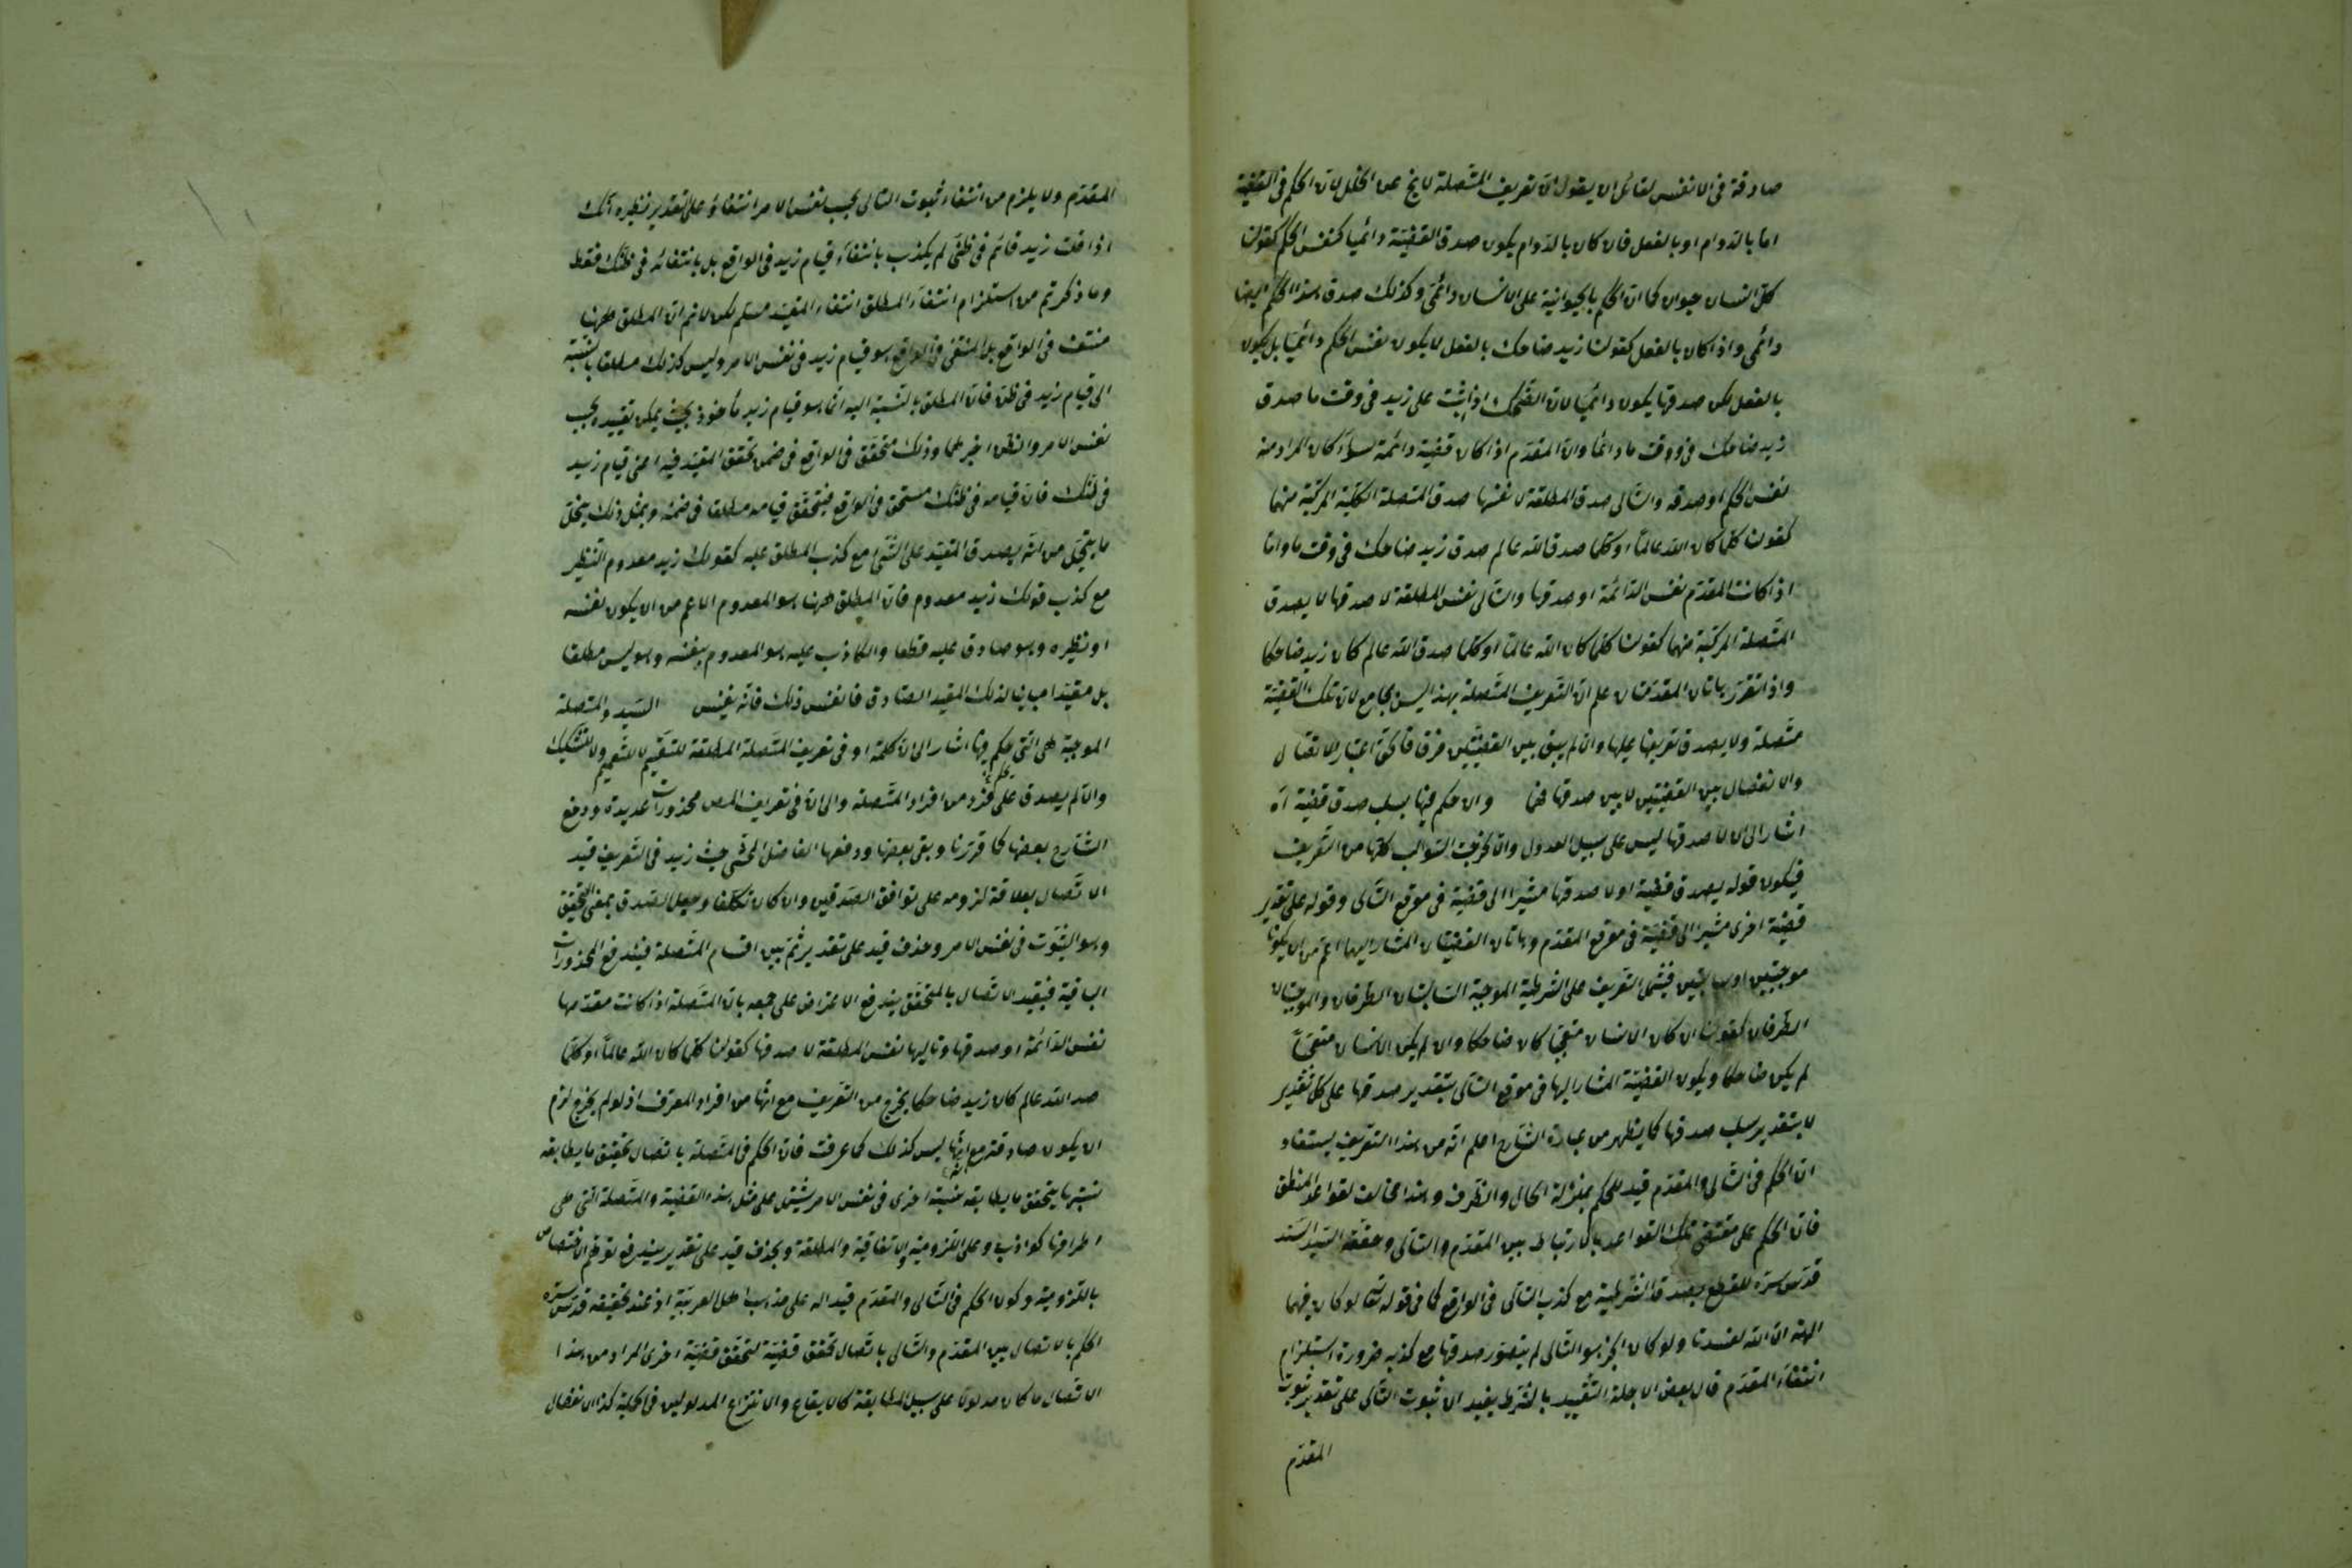 صادقة فى الانفس لقائل ان يقول ان تعريف المتصلة لا يخ عن الخلل لان الحكم فى القضية
اما بالدوام او بالفعل فان كان بالدوام يكون صدق القضية دائميا كنفس الحكم كقولنا
كل انسان حيوان كما ان الحكم بالحيوانية على الانسان دائمى وكذلك صدق هذا الحكم ايضا
دائمى واذا كان بالفعل كقولنا زيد ضاحك بالفعل لا يكون نفس الحكم دائميا بل يكون
بالفعل لكن صدقها يكون دائميا لان الضحك اذا ثبت على زيد فى وقت ما صدق
زيد ضاحك فى وقت ما دائما وان المقدم اذا كان قضية دائمة سواء كان المراد منه
نفس الحكم او صدقه والتالى صدق المطلقة لا نفسها صدق المتصلة الكلية المركبة منهما
كقولنا كلما كان الله عالما او كلما صدق الله عالم صدق زيد ضاحك فى وقت ما واما
اذا كانت المقدم نفس الدائمة او صدقها والتالى نفس المطلقة لا صدقها لا يصدق
المتصلة المركبة منهما كقولنا كلما كان الله عالما او كلما صدق الله عالم كان زيد ضاحكا
واذا تقرر هاتان المقدمتان علم ان التعريف المتصلة بهذا ليس بجامع لان تلك القضية
متصلة ولا يصدق تعريفها عليها وان لم يبق بين القضيتين فرق اعتبار الاتصال
والانفصال بين القضيتين لا بين صدقهما والا حكم فيها بسلب صدق قضية اه
اشار الى ان لا صدقها ليس على سبيل العدول والا لخرجت السوالب كلها من التعريف
فيكون قوله يصدق قضية او لا صدقها مشيرا الى قضية فى موقع التالى وقوله على تقدير
قضية اخرى مشيرا الى قضية فى موقع المقدم وهاتان القضيتان المشار اليهما اعم من ان يكونا
موجبتين او سالبتين فيشمل التعريف على الشرطية الموجبة السالبتان الطرفان والموجبتان
الطرفان كقولنا ان كان الانسان متعجبا كان ضاحكا وان لم يكن الانسان متعجبا
لم يكن ضاحكا ويكون القضية المشار اليها فى موقع التالى بتقدير صدقها على كل تقدير
لا بتقدير سلب صدقها كما يظهر من عبارة الشارح اعلم انه من هذا التعريف يستفاد
ان الحكم فى التالى والمقدم قيد للحكم بمنزلة الحال والظرف وهذا مخالف لقواعد المنطق
فان الحكم على مقتضى تلك القواعد بالارتباط بين المقدم والتالى وحققه السيد السند
قدس سره للقطع بصدق الشرطية مع كذب التالى فى الواقع كما فى قوله تعالى لو كان فيهما
الهة الا الله لفسدتا ولو كان الخبر هو التالى لم يتصور صدقها مع كذبه ضرورة استلزام
انتفاء المقدم قال بعض الاجلة التقييد بالشرط يفيد ان ثبوت التالى على تقدير ثبوت
المقدم
المقدم ولا يلزم من انتفاء ثبوت التالى بحسب نفس الامر انتفاؤه على تقدير نظيره انك
اذا قلت زيد قائم فى ظنى لم يكذب بانتفاء قيام زيد فى الواقع بل بانتفائه فى ظنك فقط
وما ذكرتم من استلزام انتفاء المطلق انتفاء المقيد مسلم لكن لا نم ان المطلق ههنا
منتف فى الواقع بل المنتفى فى الواقع هو قيام زيد فى نفس الامر وليس كذلك مطلقا بالنسبة
الى قيام زيد فى ظنى فان المطلق بالنسبة اليه انما هو قيام زيد مأخوذ بحيث يمكن تقييده بحسب
نفس الامر والظن وغيرهما وذلك متحقق فى الواقع فى ضمن تحقق المقيد فيه اعنى قيام زيد
فى ظنك فان قيامه فى ظنك متحقق فى الواقع فيتحقق قيامه مطلقا فى ضمنه وبمثل ذلك ينحل
ما يتخيل من انه يصدق المقيد على الشئ مع كذب المطلق عليه كقولك زيد معدوم النظير
مع كذب قولك زيد معدوم فان المطلق ههنا هو المعدوم الاعم من ان يكون نفسه
او نظيره وهو صادق عليه قطعا والكاذب عليه هو المعدوم بنفسه وهو ليس مطلقا
بل مقيدا مباينا لذلك المقيد الصادق فانفس ذلك فانه نفيس السيد والمتصلة
الموجبة هى التى حكم فيها اشار الى ان كلمة او فى تعريف المتصلة المطلقة للتقسيم لا للتعميم ولا للتشكيك
والا لم يصدق على فرد من افراد المتصلة والى ان فى تعريف المص محذورات عديدة ودفع
الشارح بعضها كما قررنا وبقى بعضها ودفعها الفاضل المحشى حيث زيد فى التعريف قيد
الاتصال بعلاقة لزومه على توافق الصدقين وان كان تكلفا وجعل الصدق بمعنى التحقق
وهو الثبوت فى نفس الامر وحذف قيد على تقدير ثم بين اقسام المتصلة فيندفع المحذورات
الباقية فبقيد الاتصال بالمتحقق يندفع الاعتراض على جمعه بان المتصلة اذا كانت مقدمها
نفس الدائمة او صدقها وتاليها نفس المطلقة لا صدقها كقولنا كلما كان الله عالما او كلما
صد الله عالم كان زيد ضاحكا يخرج من التعريف مع انها من افراد المعرف اذ لو لم يخرج لزم
ان يكون صادقة مع انها ليس كذلك كما عرفت فان الحكم فى المتصلة باتصال تحقق ما يطابقه
نسبتها بتحقق ما يطابقه نسبة اخرى فى نفس الامر يشتمل على مثل هذه القضية والمتصلة التى هى
اطرافها كواذب وعلى اللزومية والاتفاقية والمطلقة وبحذف قيد على تقدير يندفع توهم الاختصاص
باللزومية وكون الحكم فى التالى والمقدم قيدا له على مذهب اهل العربية اذ عند تحقيقه قدس سره
الحكم بالاتصال بين المقدم والتالى باتصال تحقق قضية لتحقق قضية اخرى المراد من هذا
الاتصال ما كان مدلولا على سبيل المطابقة كالايقاع والانتزاع المدلولين فى الحملية كذا الانفصال